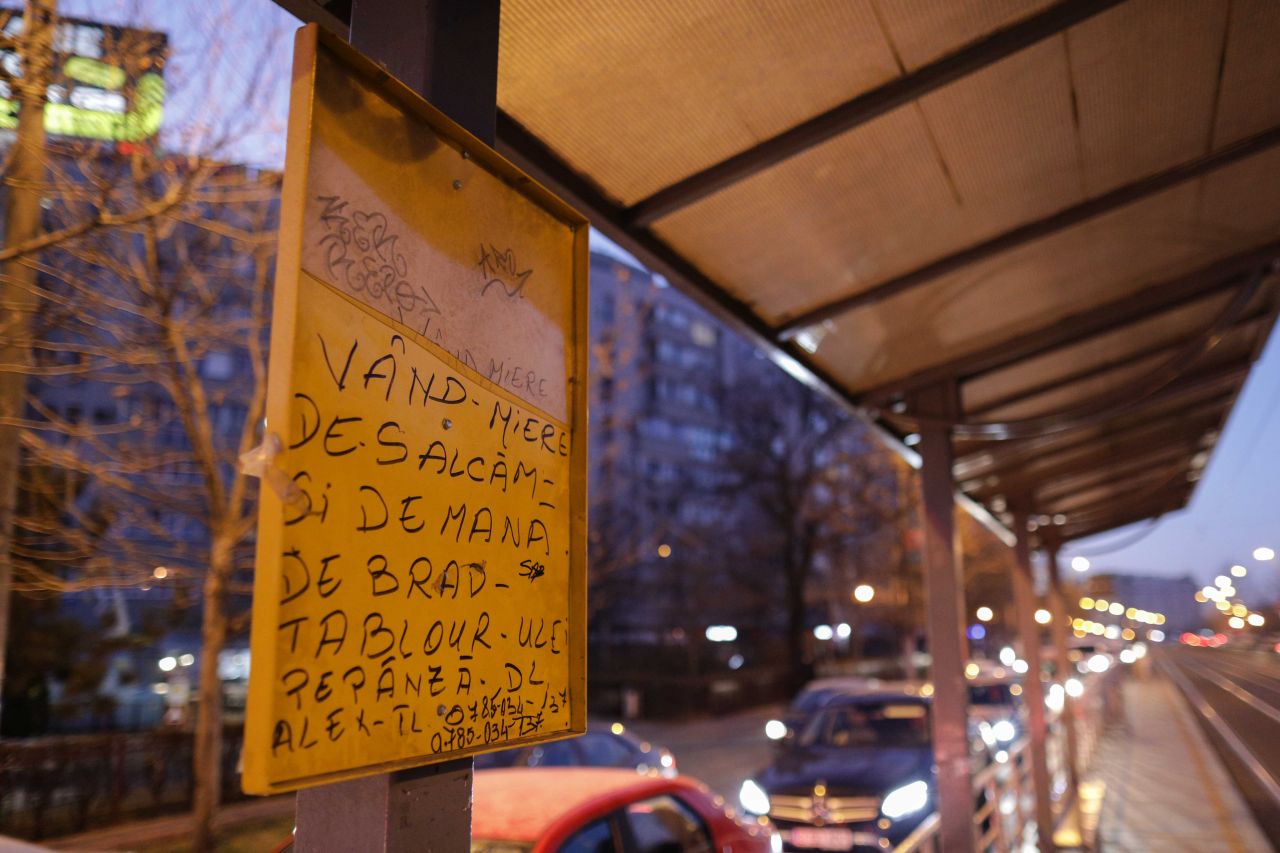 VÂND MIERE
VÂND-MiERE
DE.SALCÂM-
Si DE MANA
DE BRAD-
TABLOUR-ULEi
PEPÂNZĂ. DL
ALEX-TL 0785-034-137
0785-034-137